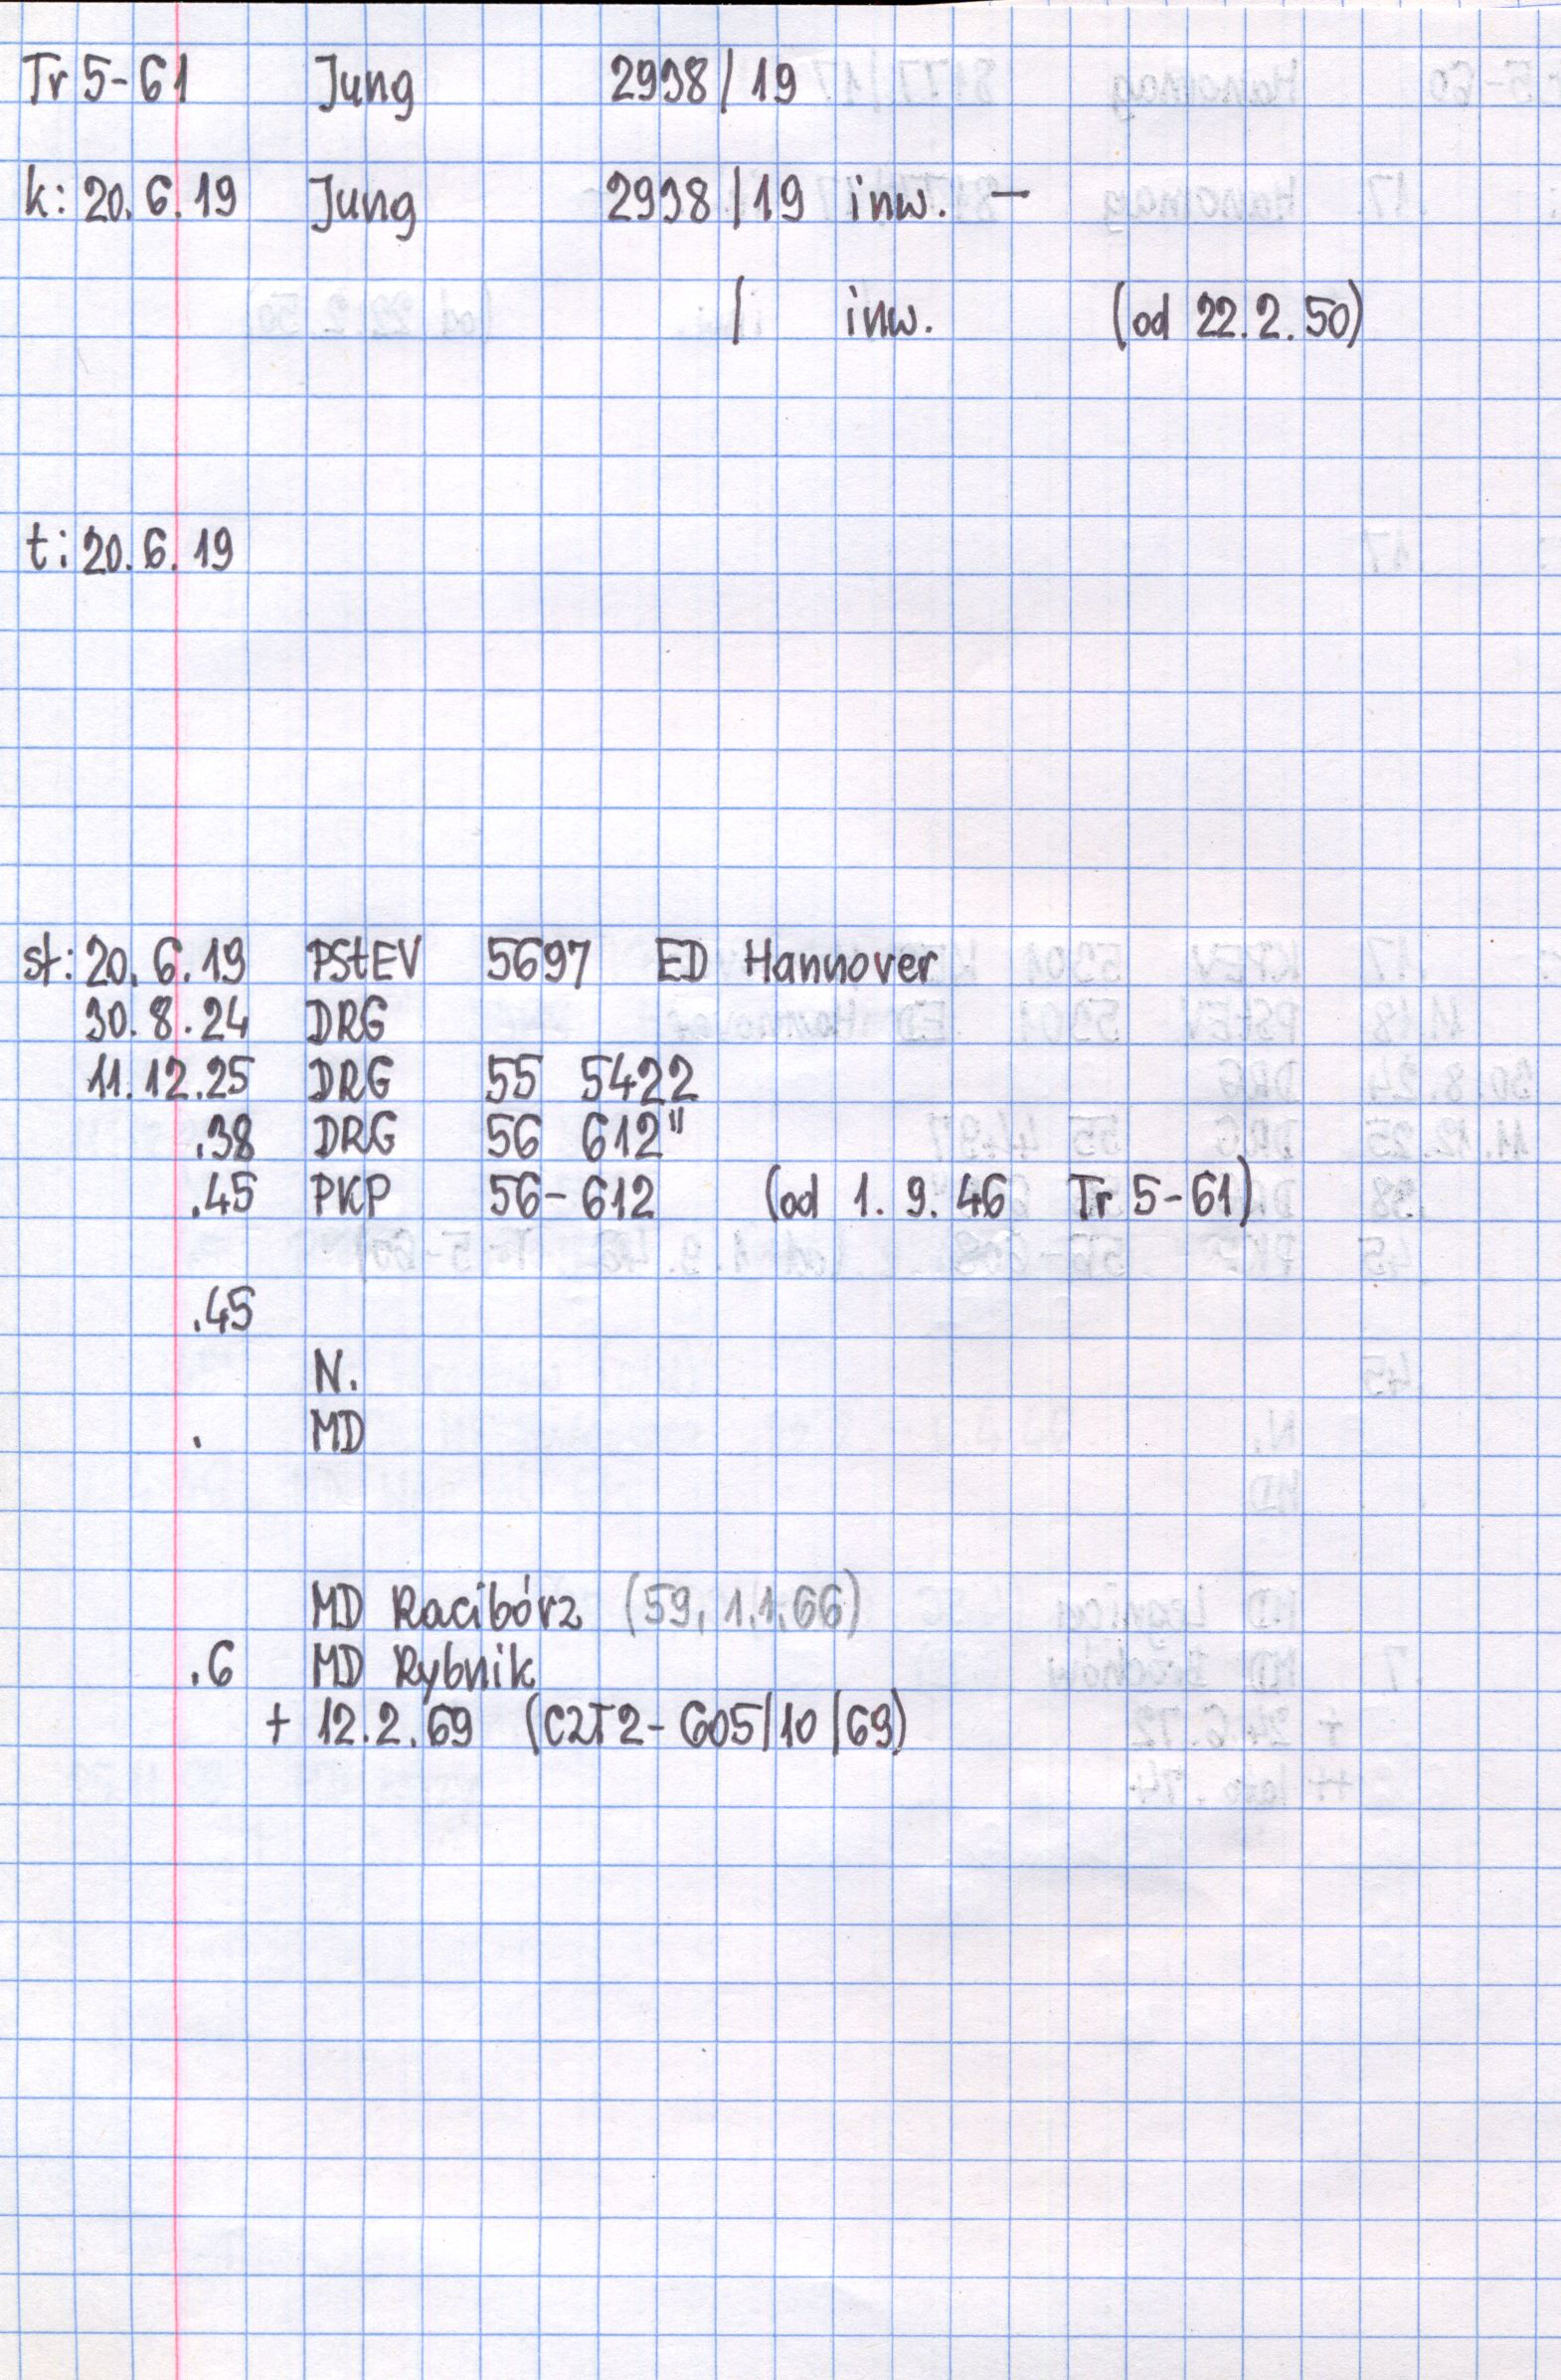 Tr 5-61 Jung 2998/19
k: 20.6.19 Jung 2998/19 inw. –
/ inw. (od 22.2.50)
t: 20.6.19
st: 20.6.19 PStEV 5697 ED Hannover
30.8.24 DRG
11.12.25 DRG 55 5422
.38 DRG 56 612"
.45 PKP 56-612 (od 1.9.46 Tr 5-61)
.45
N.
. MD
MD Racibórz (59, 1.1.66)
.6 MD Rybnik
+ 12.2.69 (CZT2-605/10/69)